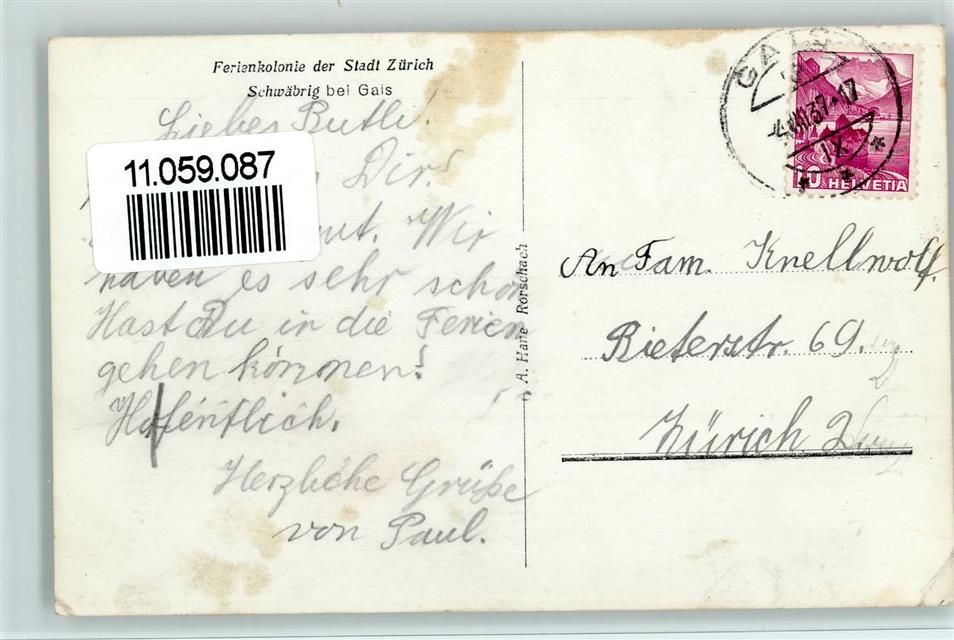 Ferienkolonie der Stadt Zürich
Schwäbrig bei Gais
Lieber Ruedi!
11.059.087
Dir!
gut. Wir
haben es sehr schön
Hast Du in die Ferien
gehen können?
Hofentlich.
Herzliche Grüße
von Paul.
A. Hane Rorschach
GAIS
IX
10 HELVETIA
An Fam. Knellwolf.
Rieterstr. 69.
Zürich 2